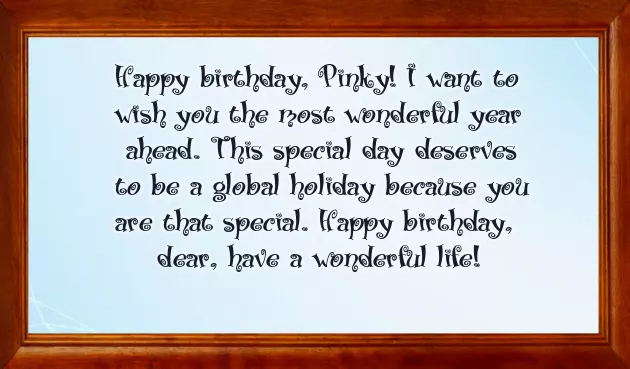 Happy birthday, Pinky! I want to
wish you the most wonderful year
ahead. This special day deserves
to be a global holiday because you
are that special. Happy birthday,
dear, have a wonderful life!